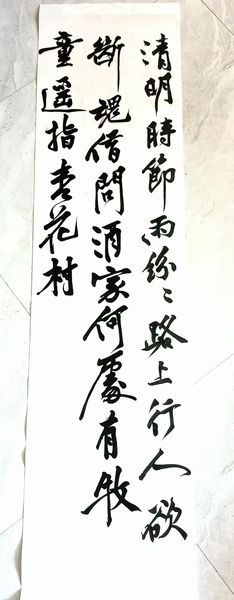 清明時節雨紛〻路上行人欲
斷魂借問酒家何處有牧
童遥指杏花村